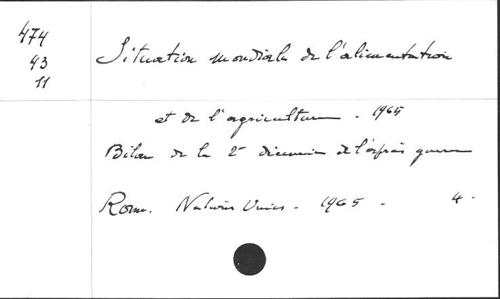 474
43
11
Situation mondiale de l'alimentation
et de l'agriculture. 1965
Bilan de la 2e décennie de l'après guerre
Rome. Nations Unies - 1965 - 4.